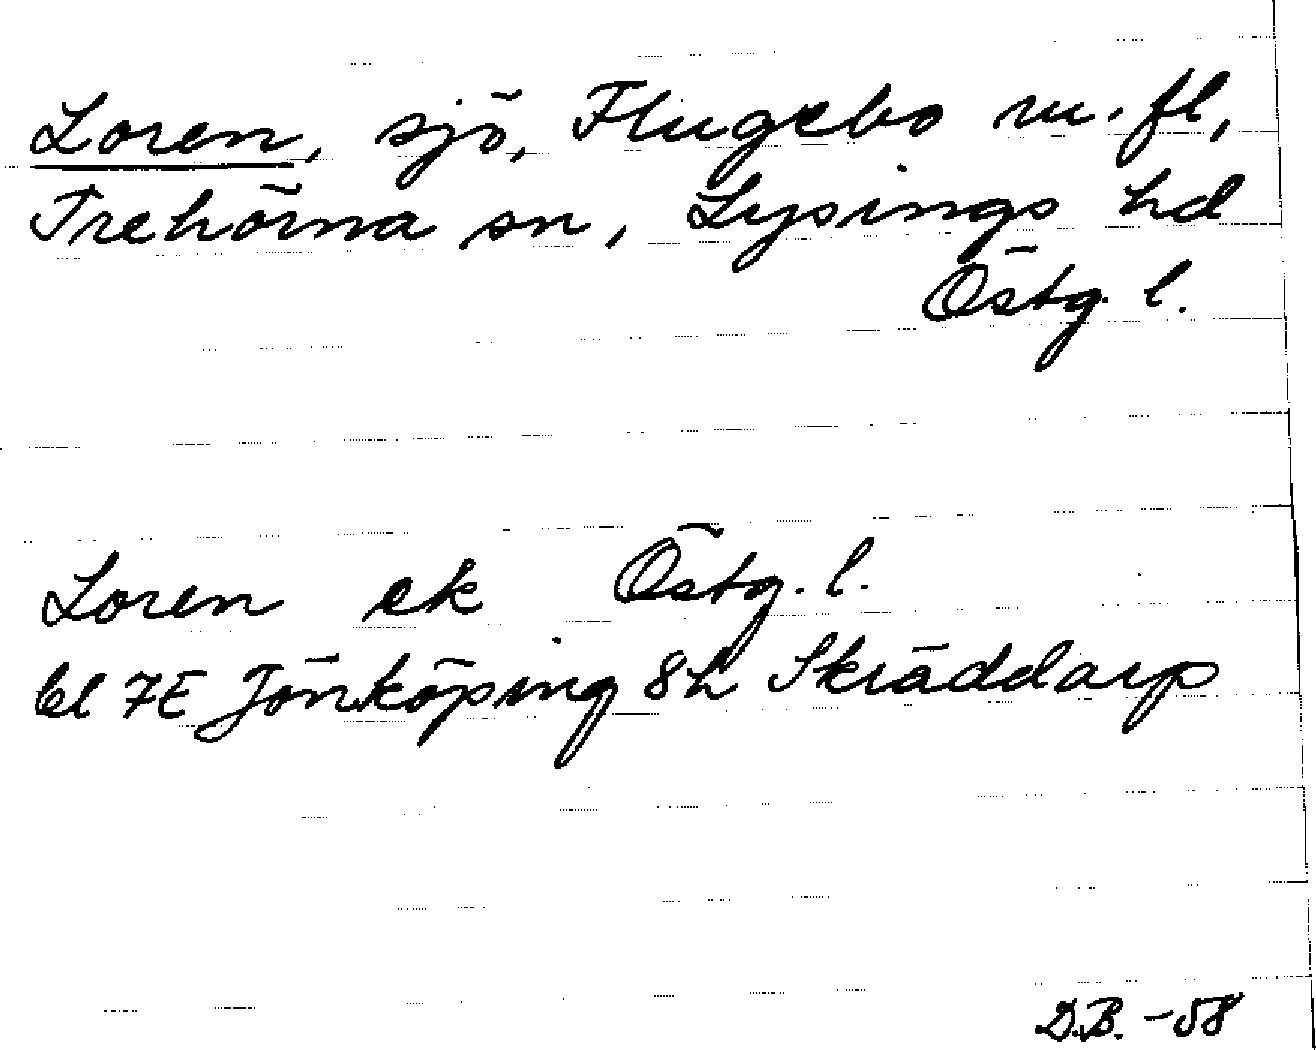 Loren, sjö, Flugebo m.fl,
Trehörna sn, Lysings hd
Östg. l.
Loren ek Östg. l.
bl 7E Jönköping 8h Skräddarp
D.B. -58